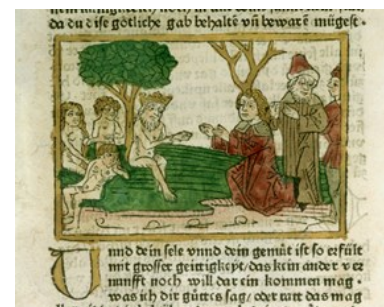 da du dise götliche gab behaltē vñ bewarē mügest.
Unnd dein sele vnnd dein gemüt ist so erfült
mit grosser geittigkeyt/das kein ander ver
nunfft noch will dar ein kommen mag.
was ich dir gůttes sag/oder tatt das mag